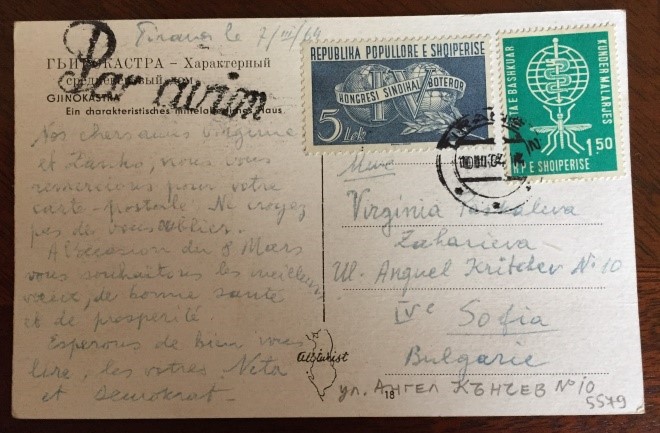 Tirana le 7/III/64
ГЬИНОКАСТРА – Характерный
средневековый дом
Par avion
GJINOKASTRA
Ein charakteristisches mittelalterliches Haus
Nos chers amis Virginie
et Zanko, nous vous
remercions pour votre
carte-postale. Ne croyez
pas de vous oublier.
A l'occasion du 8 Mars
vous souhaitons les meilleurs
vœux, de bonne santé
et de prosperité.
Esperons de bien vous
lire, les votres Neta
et Demokrat
REPUBLIKA POPULLORE E SHQIPERISE
KONGRESI SINDIKAL BOTEROR
IV
5 Lek
BOTA E BASHKUAR
KUNDER MALARJES
1.50
R P E SHQIPERISE
Mme
Virginia
Zaharieva
Ul. Anguel Kritchev No 10
IVe Sofia
Bulgarie
albturist
18
ул. АНГЕЛ КЪНЧЕВ No 10
5579